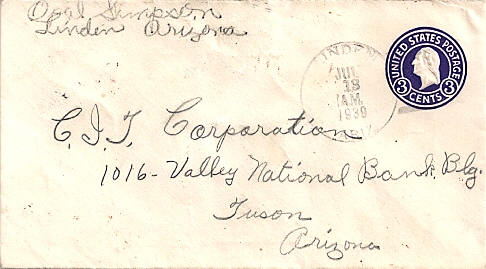 Opal Simpson
Linden Arizona
UNITED STATES POSTAGE
3 CENTS 3
LINDEN
JUL
13
AM
1939
ARIZ.
C.I.T. Corporation
1016- Valley National Bank Blg.
Tuson
Arizona